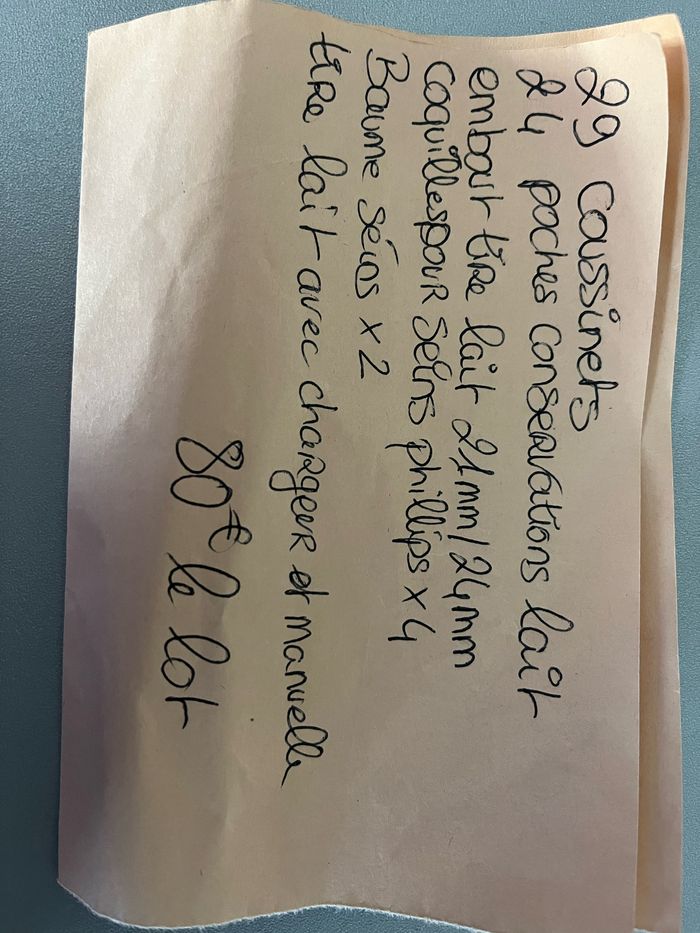 29 coussinets
24 poches conservations lait
embout tire lait 21mm/24mm
coquilles pour seins phillips x4
Baume seins x2
tire lait avec chargeur et manuelle
80€ le lot